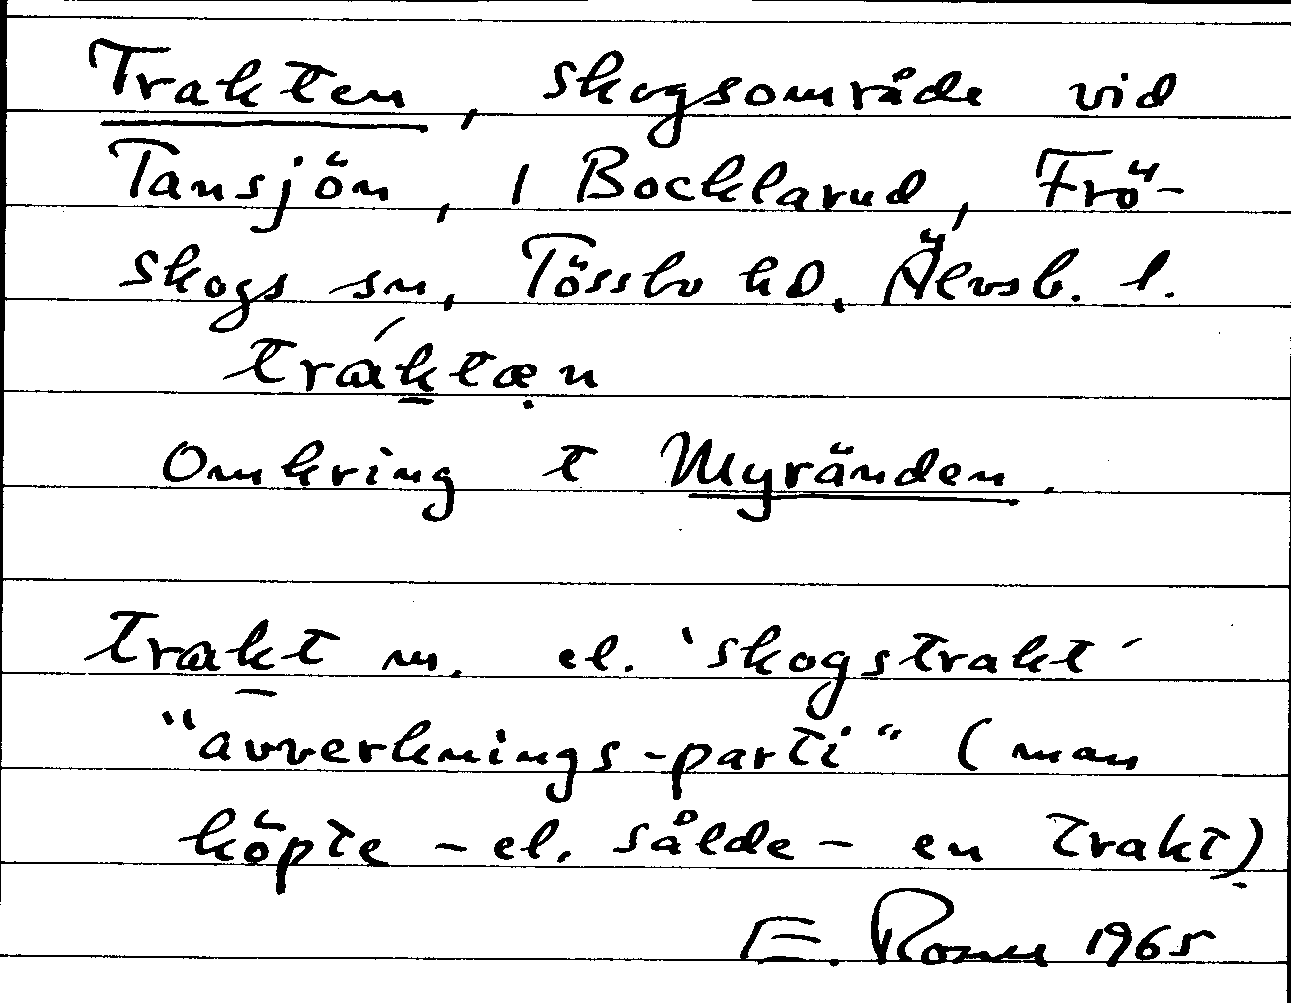 Trakten, skogsområde vid
Tansjön, i Bocklarud, Frö-
skogs sn, Tössbo hd. Älvsb. l.
tráktæ̣n
Omkring t Myränden.
trakt m. el. 'skogstrakt'
"avverknings-parti" (man
köpte - el. sålde - en trakt)
E. 1965